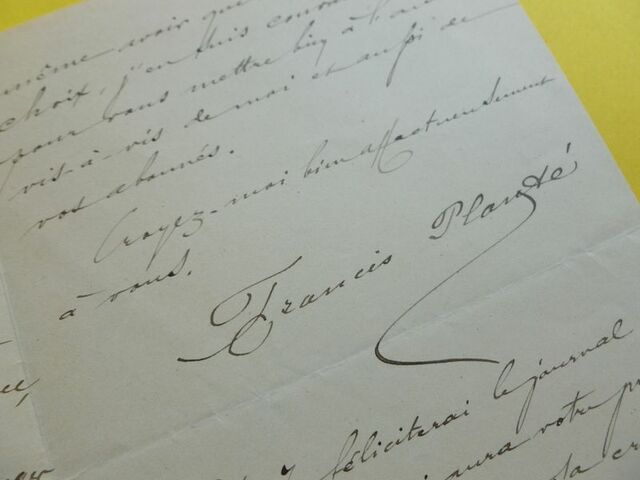 même avoir que
choix, j'en suis
pour vous mettre bien à l'
vis-à-vis de moi et aussi de
vos abonnés.
Croyez-moi bien affectueusement
à vous.
Francis Planté
féliciterai le journal
aura votre